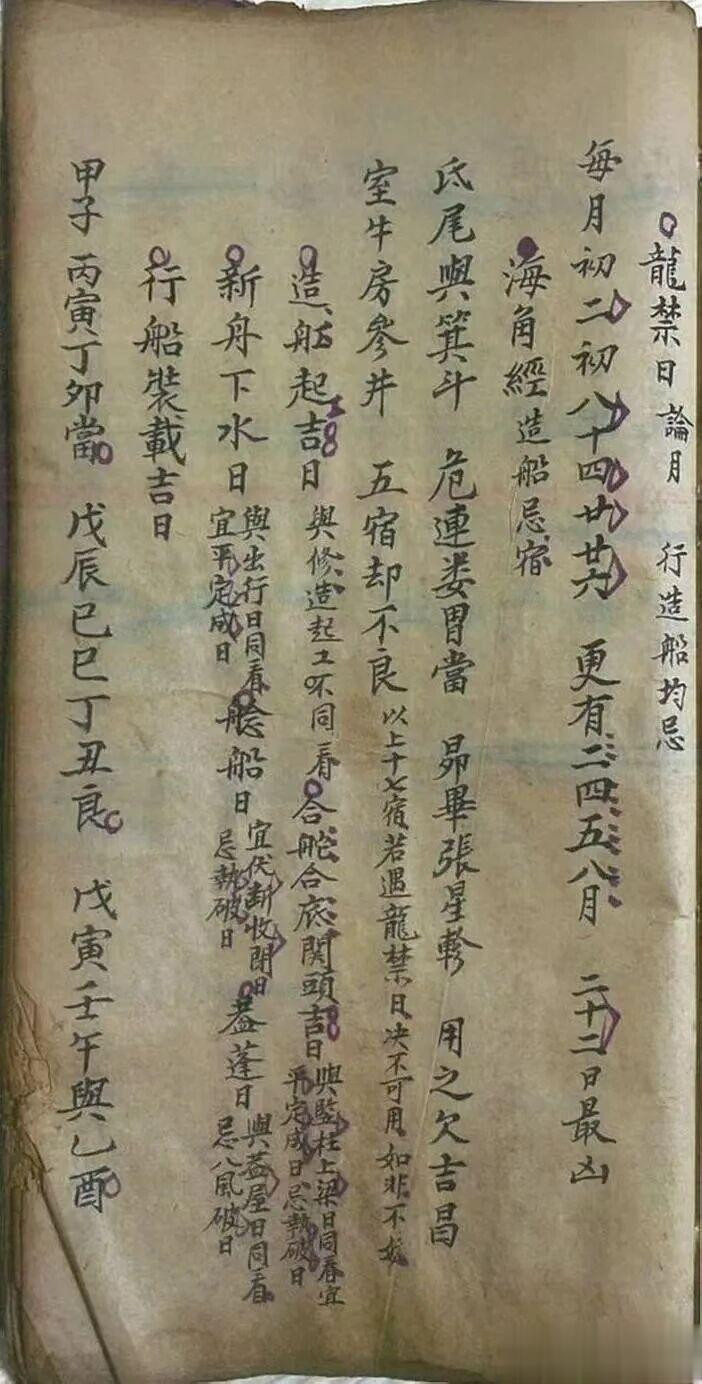 龍禁日 論月 行造船均忌
每月初二初八十四廿廿六 更有二四五八月 二十二日最凶
海角經 造船忌宿
氐尾與箕斗 危連婁胃當 昴畢張星軫 用之欠吉昌
室牛房參井 五宿却不良 以上十七宿若遇龍禁日决不可用如非不妨
造船起工吉日 與修造起工不同看 合舵合底関頭吉日 與監柱上梁日同看宜平定成日忌執破日
新舟下水日 與出行日同看宜平定成日 艌船日 宜伏断收閉日忌執破日 蓋蓬日 與蓋屋日同看忌八風破日
行船裝載吉日
甲子丙寅丁卯當 戊辰己巳丁丑良 戊寅壬午與乙酉